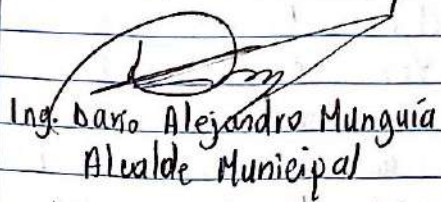 Ing. Darío Alejandro Munguía
Alcalde Municipal